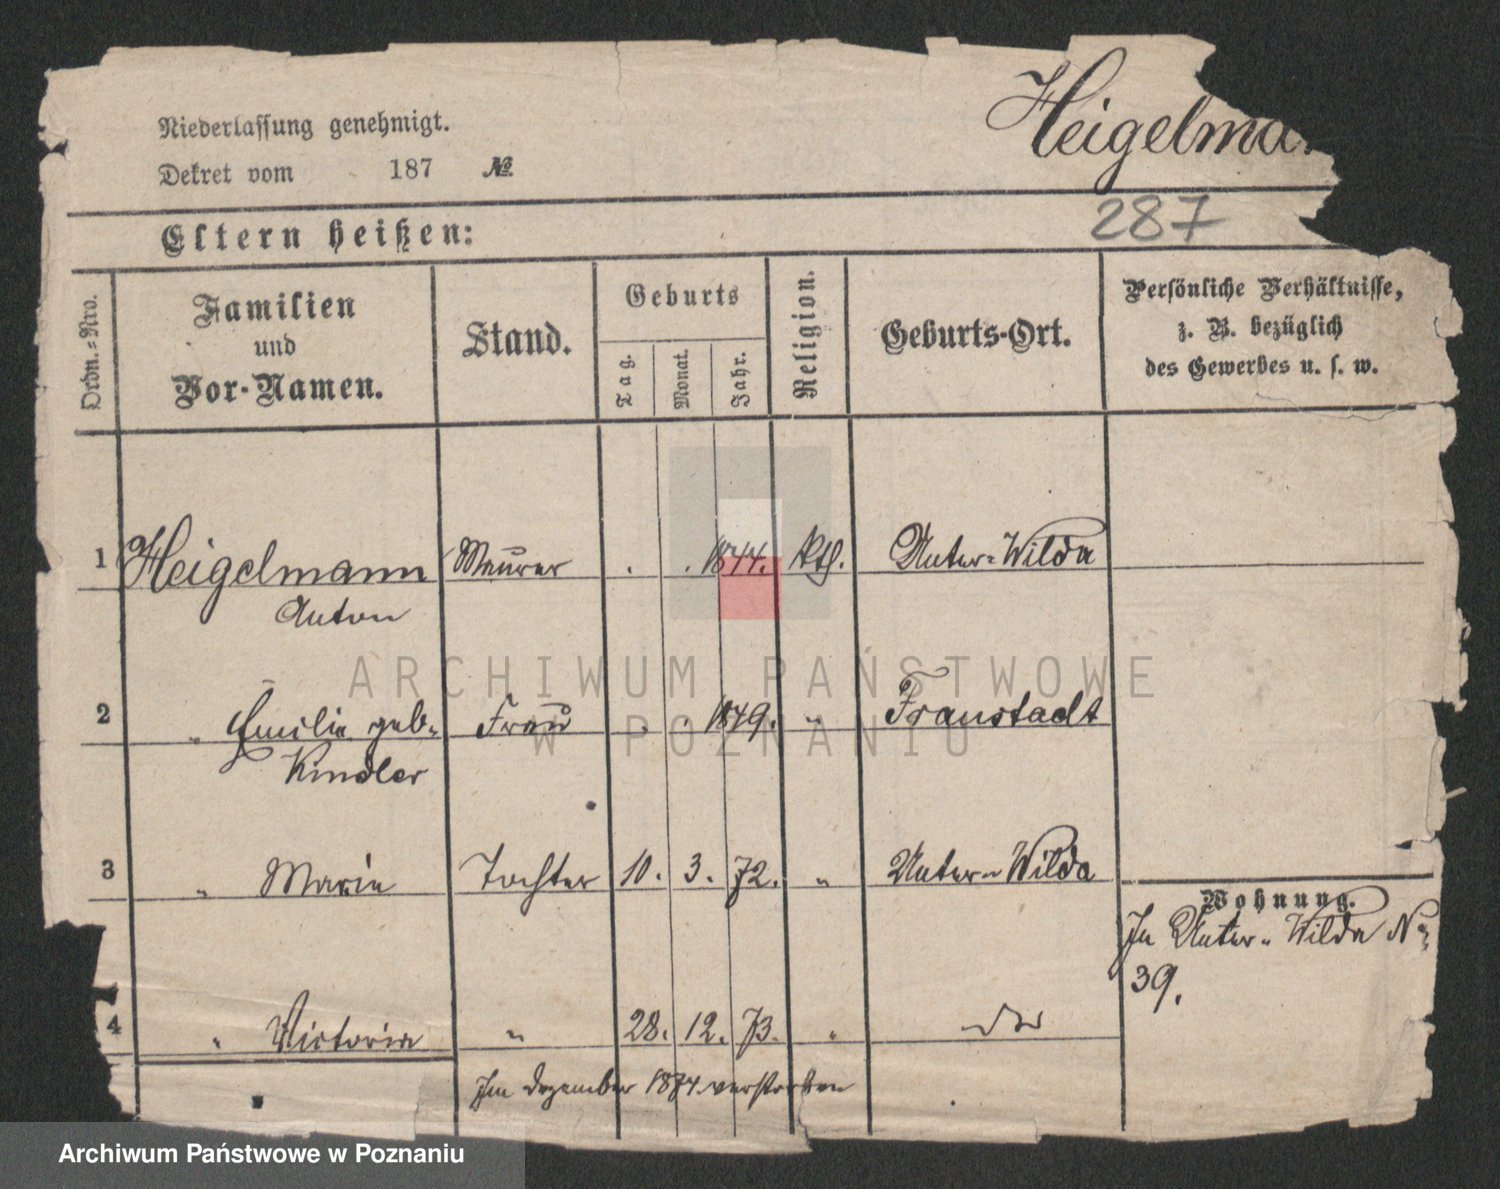 Heigelma
Niederlassung genehmigt.
Dekret vom 187 No.
287
Eltern heißen:
Ordn.=Nro.
Familien
und
Vor-Namen.
Stand.
Geburts
Tag.
Monat.
Jahr.
Religion.
Geburts-Ort.
Persönliche Verhältnisse,
z. B. bezüglich
des Gewerbes u. s. w.
1 Heigelmann Maurer . . 1844. kth. Unter-Wilda
Anton
2 " Emilie geb. Frau . . 1849. " Fraustadt
Kindler
3 " Marie Tochter 10. 3. 72. " Unter-Wilda
Wohnung.
In Unter-Wilda No
39.
4 " Victoria " 28. 12. 73. " dto
Im Dezember 1874 verstorben
ARCHIWUM PAŃSTWOWE
W POZNANIU
Archiwum Państwowe w Poznaniu